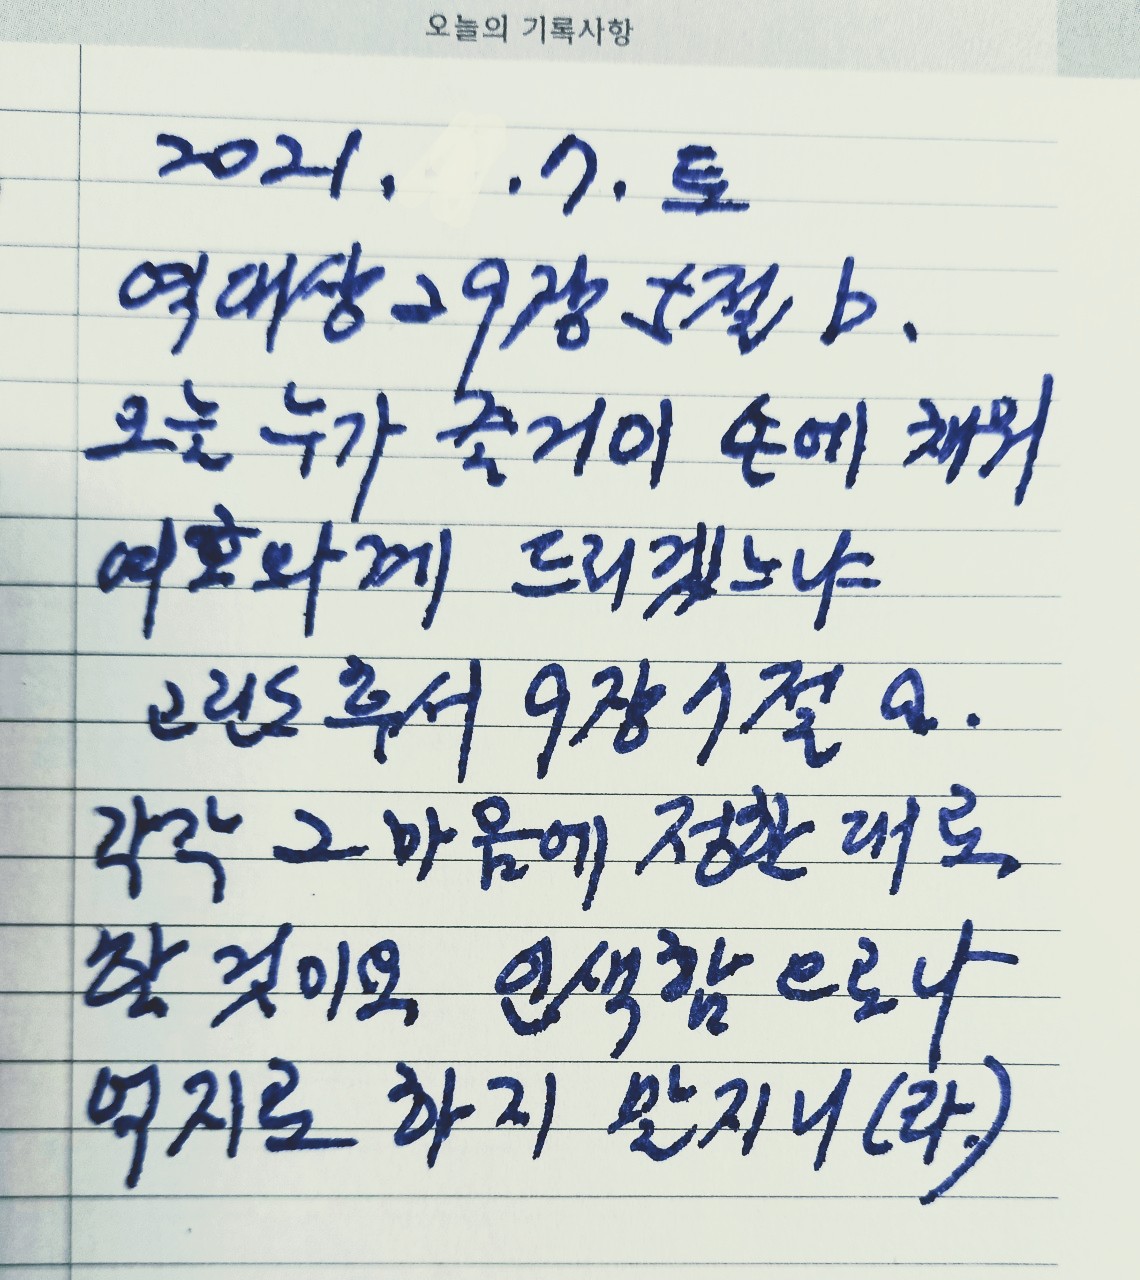 오늘의 기록사항
2021. .7. 토
역대상 29장 5절 b.
오늘 누가 즐거이 손에 채워
여호와께 드리겠느냐
고린도후서 9장 7절 a.
각각 그 마음에 정한 대로
할 것이요 인색함으로나
억지로 하지 말지니(라.)